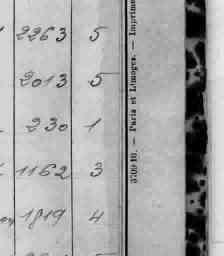 2263 5
2013 5
230 1
1162 3
1819 4
370910. — Paris et Limoges. — Imprime